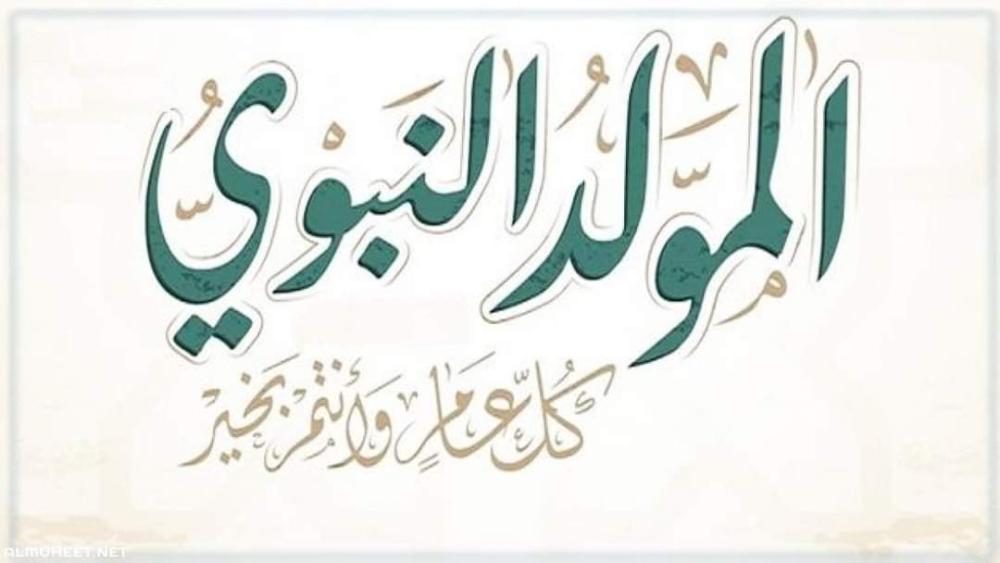 المولد النبوي
كُلّ عَامٍ وَأَنْتُمْ بِخَيْر
ALMOHEET.NET